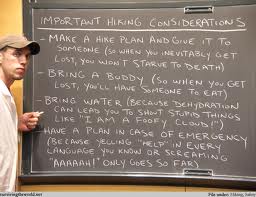 IMPORTANT HIKING CONSIDERATIONS
- MAKE A HIKE PLAN AND GIVE IT TO
SOMEONE (SO WHEN YOU INEVITABLY GET
LOST, YOU WON'T STARVE TO DEATH)
- BRING A BUDDY (SO WHEN YOU GET
LOST, YOU'LL HAVE SOMEONE TO EAT)
- BRING WATER (BECAUSE DEHYDRATION
CAN LEAD YOU TO SHOUT STUPID THINGS
LIKE "I AM A POOFY CLOUD!")
- HAVE A PLAN IN CASE OF EMERGENCY
(BECAUSE YELLING "HELP" IN EVERY
LANGUAGE YOU KNOW OR SCREAMING
"AAAAAH!" ONLY GOES SO FAR)
File under: Hiking, Safety